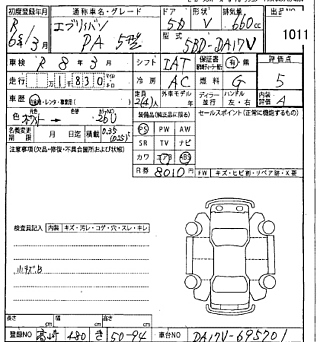 初度登録年月 通称車名・グレード ドア 形状 排気量 出品NO
R 6年/3月 エブリイバン PA 5型 5D V 660cc 1011
型式 5BD-DA17V
車検 R 8年 3月 シフト IAT 保証書 有・無 評価点
走行 冷房 AC 燃料 G 5
車歴 レンタ・事業用 定員 2(4)人 外車モデル年 ディーラー・並行 ハンドル 左・右 内装評価 A
色 装備品(純正品に限る) セールスポイント(正常に機能するもの)
名義変更期限 月 日迄 積載 PS PW AW
注意事項(欠品・修復・不具合箇所および状態) SR TV ナビ
カワ エアB ABS
R券 8010円 FW キズ・ヒビ割・リペア跡・X要
検査員記入 内装 キズ・汚レ・コゲ・穴・スレ・キレ
小キズ.B
長さ cm 幅 cm 高さ cm
登録NO 480 き 50-94 車台NO DA17V-695701